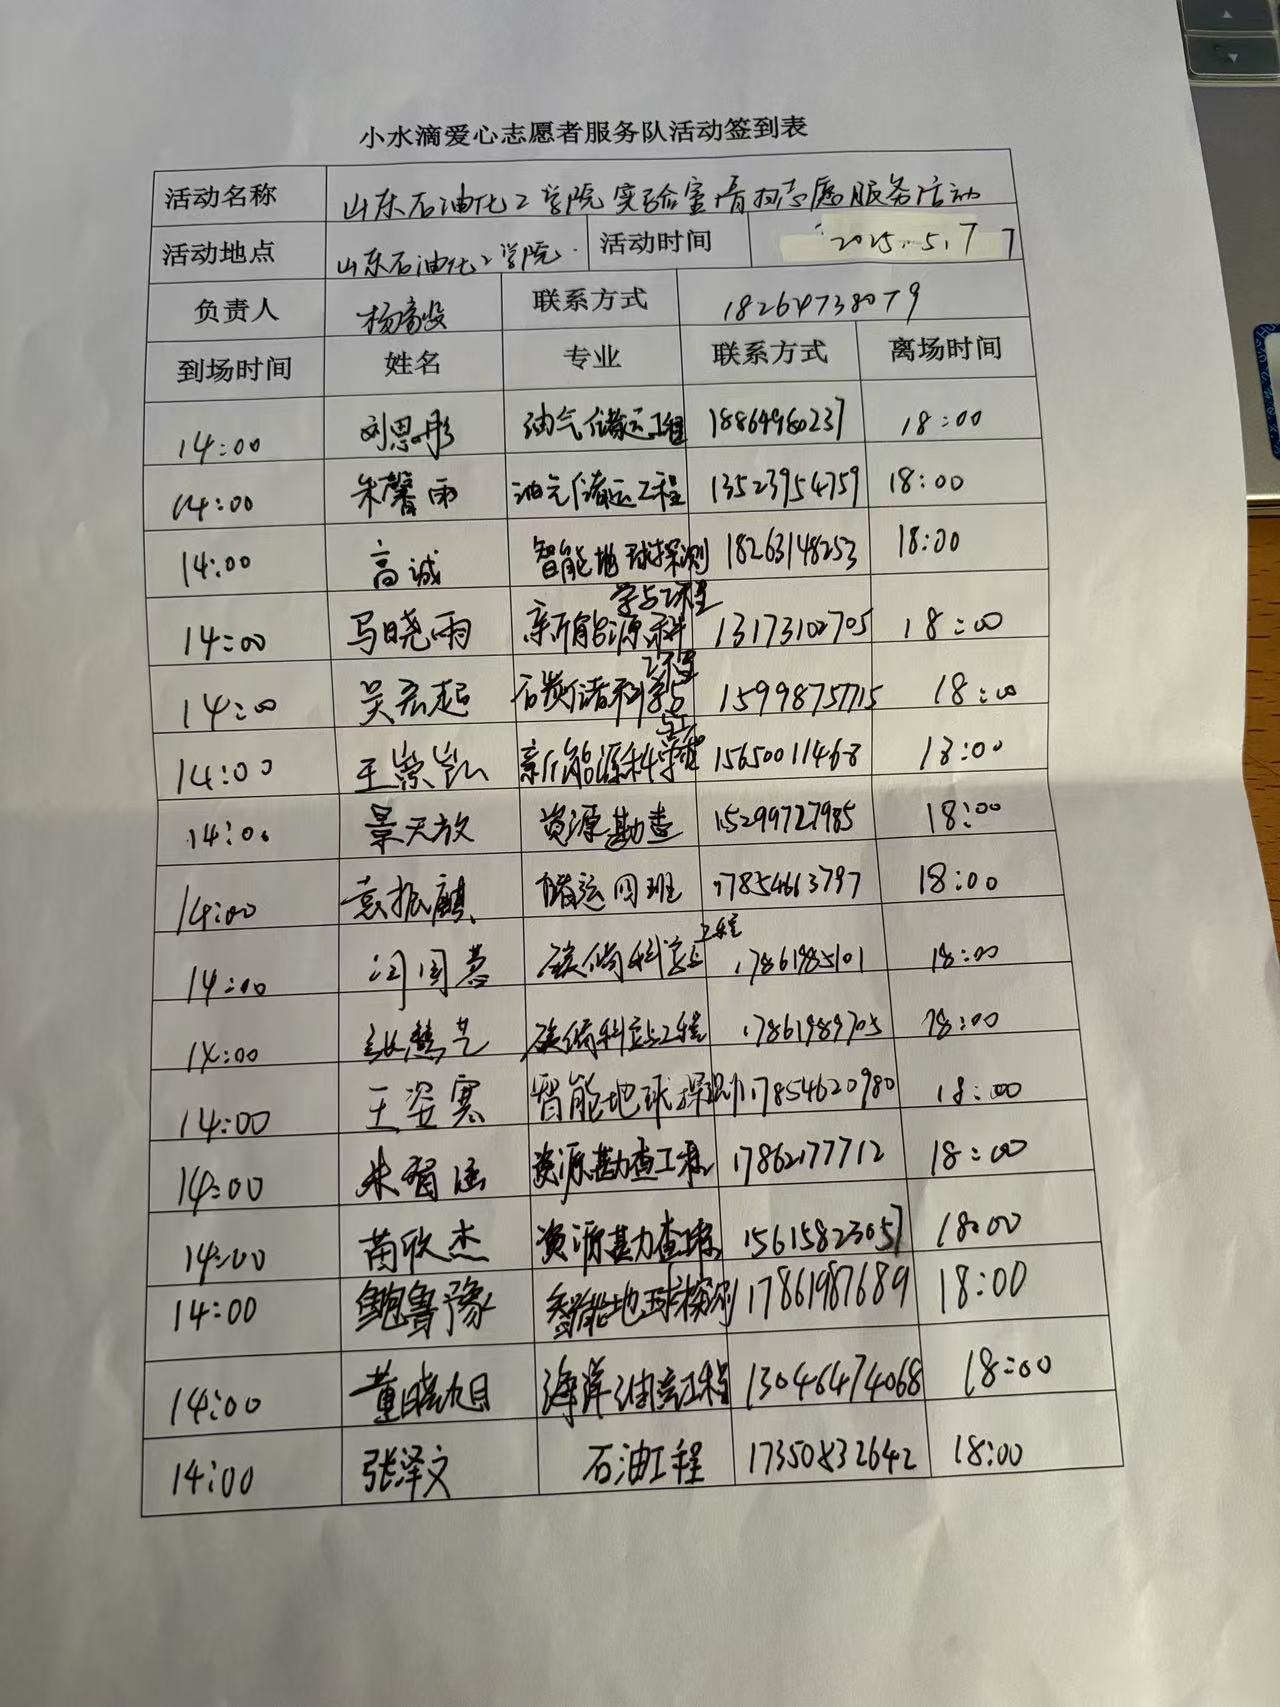 小水滴爱心志愿者服务队活动签到表
活动名称 山东石油化工学院实验室清扫志愿服务活动
活动地点 山东石油化工学院. 活动时间 2025.5.7 7
负责人 杨 联系方式 18264738079
到场时间 姓名 专业 联系方式 离场时间
14:00 刘思彤 油气储运工程 18864980237 18:00
14:00 朱馨雨 油气储运工程 13523954759 18:00
14:00 高诚 智能地球探测 18263148253 18:00
14:00 马晓雨 新能源科学与工程 13173102705 18:00
14:00 吴宏起 石炭储科学与工程 15998757715 18:00
14:00 王崇凯 新能源科学与工程 15650011468 18:00
14:00 景天放 资源勘查 15299727985 18:00
14:00 袁振麒 储运问班 17854613797 18:00
14:00 闫 碳储科学与工程 17861985101 18:00
14:00 张慧艺 碳储科学与工程 17861989705 18:00
14:00 王姿寒 智能地球探测 17854620980 18:00
14:00 朱 涵 资源勘查工程 17862177712 18:00
14:00 苗欣杰 资源勘查工程 15615823057 18:00
14:00 鲍鲁豫 智能地球探测 17861987689 18:00
14:00 董晓旭 海洋油气工程 13046474068 18:00
14:00 张泽文 石油工程 17350832642 18:00